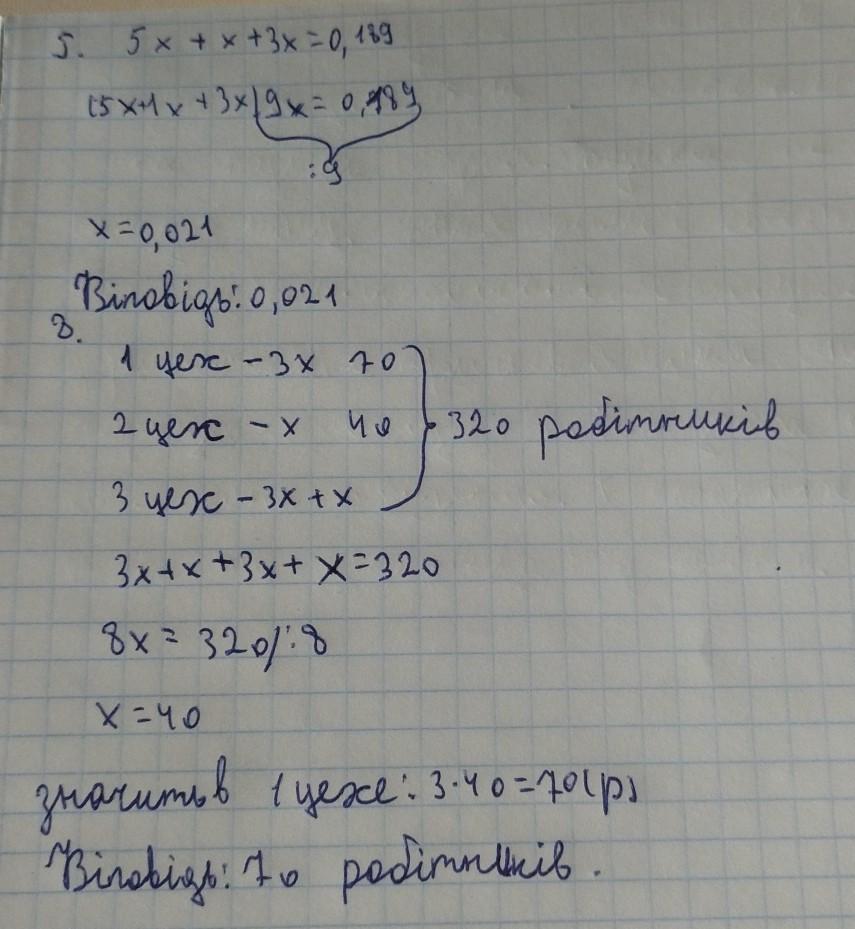 5. 5x + x + 3x = 0,189
(5x+1x + 3x) 9x = 0,189
:9
x = 0,021
Віповідь: 0,021
8.
1 цех - 3x 70
2 цех - x 40
3 цех - 3x + x
320 робітників
3x + x + 3x + x = 320
8x = 320/:8
x = 40
значить в 1 цехе: 3·40 = 70(р)
Віповідь: 70 робітників.